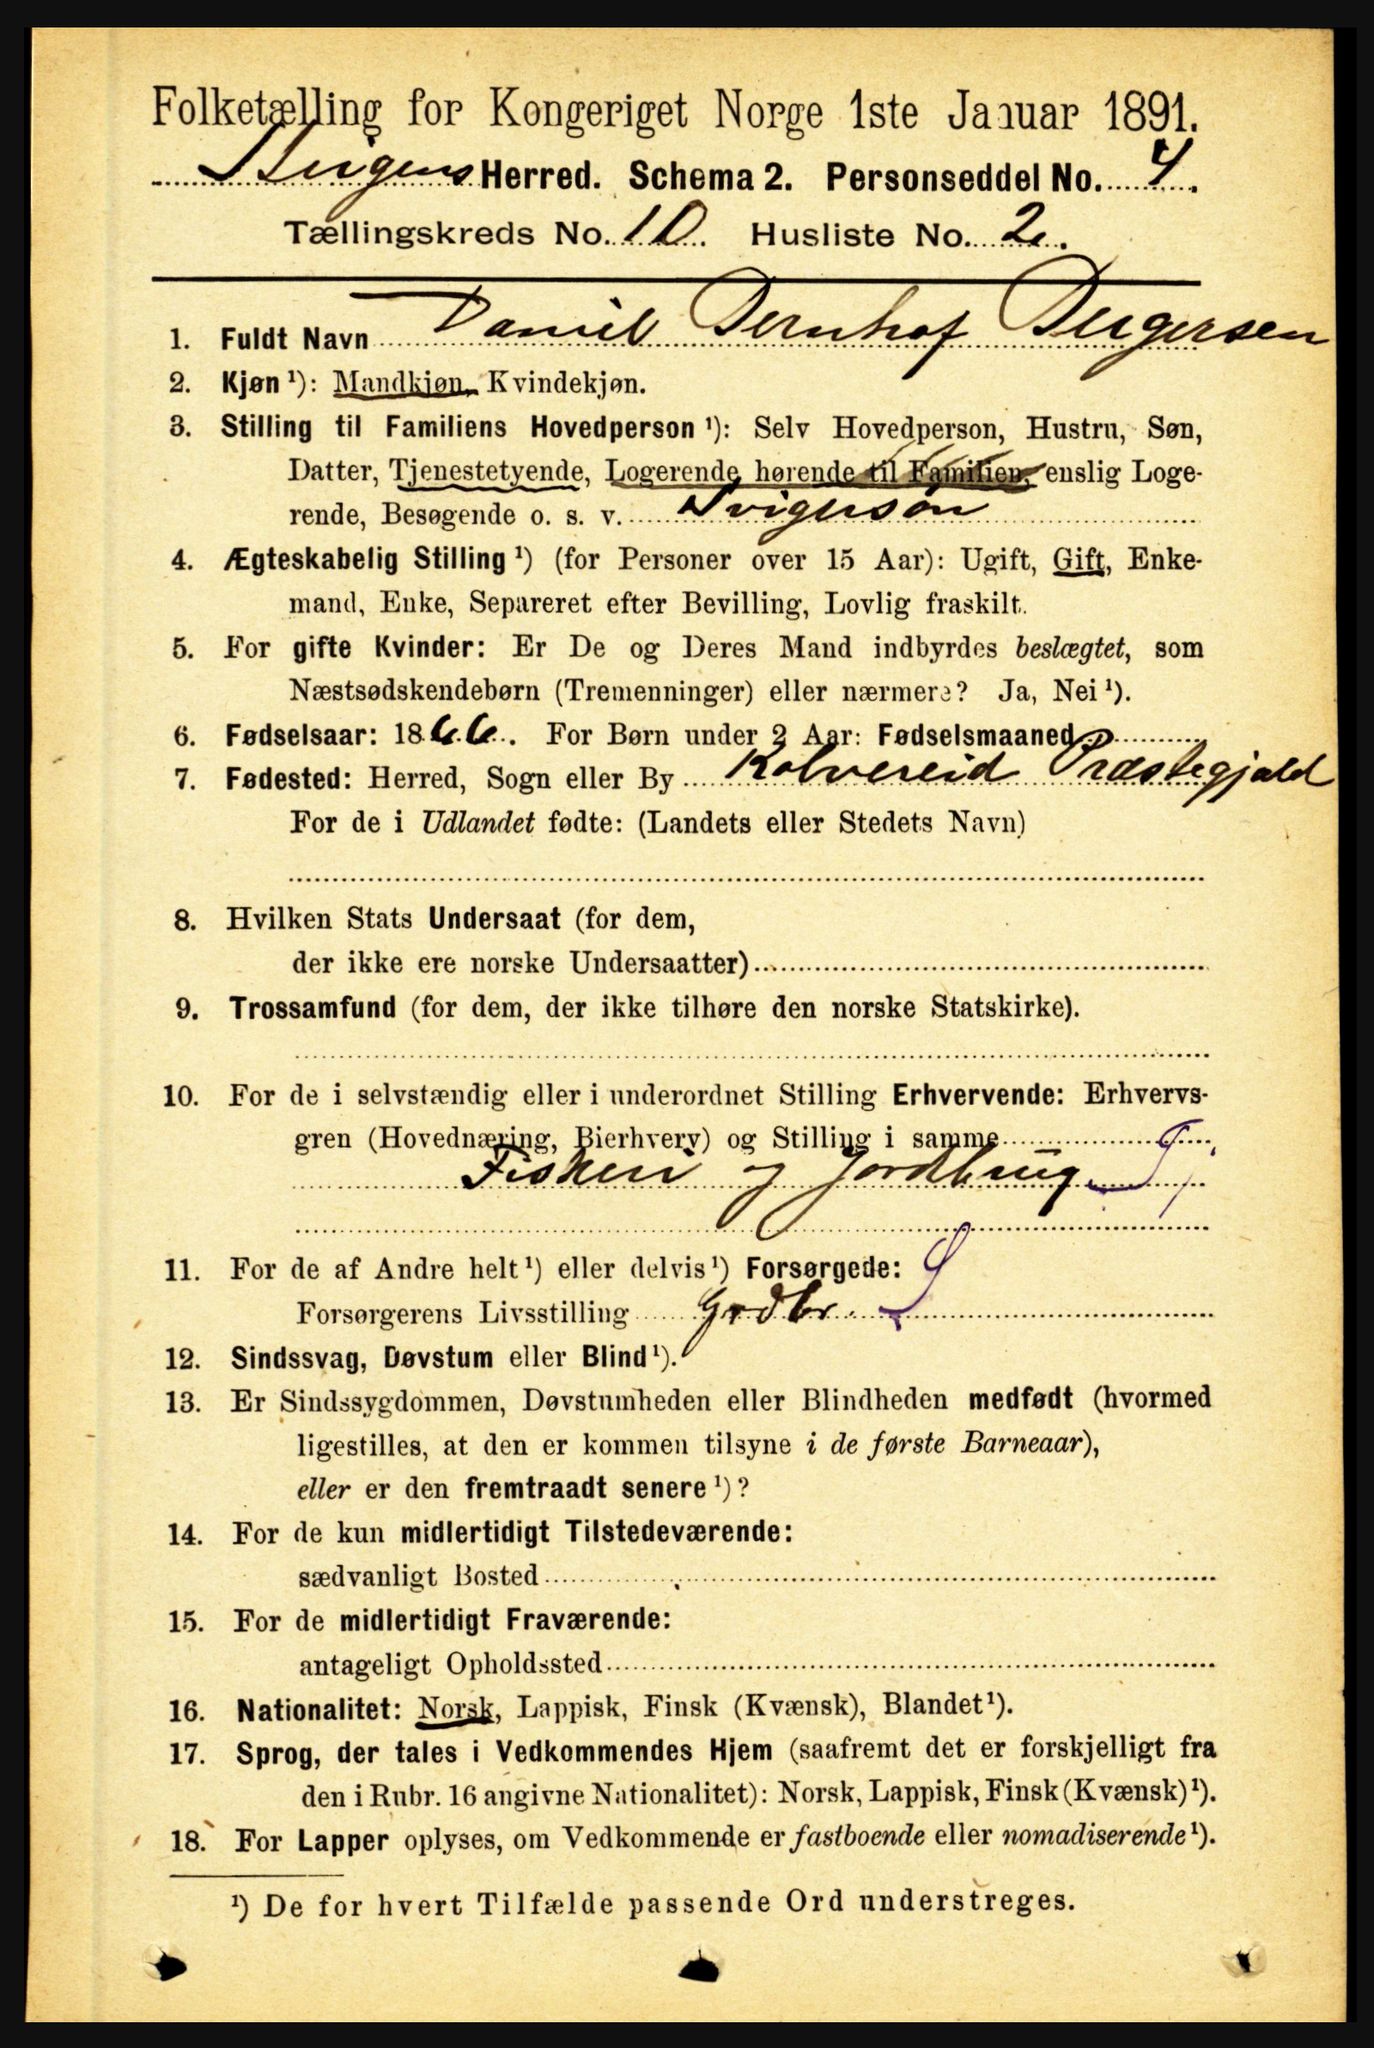 Folketælling for Kongeriget Norge 1ste Januar 1891.
Steigens Herred. Schema 2. Personseddel No. 4.
Tællingskreds No. 10. Husliste No. 2.
1. Fuldt Navn Daniel Bernhof Birgersen
2. Kjøn ¹): Mandkjøn, Kvindekjøn.
3. Stilling til Familiens Hovedperson ¹): Selv Hovedperson, Hustru, Søn,
Datter, Tjenestetyende, Logerende hørende til Familien, enslig Loge-
rende, Besøgende o. s. v. Svigersøn
4. Ægteskabelig Stilling ¹) (for Personer over 15 Aar): Ugift, Gift, Enke-
mand, Enke, Separeret efter Bevilling, Lovlig fraskilt.
5. For gifte Kvinder: Er De og Deres Mand indbyrdes beslægtet, som
Næstsødskendebørn (Tremenninger) eller nærmere? Ja, Nei ¹).
6. Fødselsaar: 1866. For Børn under 2 Aar: Fødselsmaaned
7. Fødested: Herred, Sogn eller By Kolvereid Præstegjæld
For de i Udlandet fødte: (Landets eller Stedets Navn)
8. Hvilken Stats Undersaat (for dem,
der ikke ere norske Undersaatter)
9. Trossamfund (for dem, der ikke tilhøre den norske Statskirke).
10. For de i selvstændig eller i underordnet Stilling Erhvervende: Erhvervs-
gren (Hovednæring, Bierhverv) og Stilling i samme
Fiskeri og Jordbrug
11. For de af Andre helt ¹) eller delvis ¹) Forsørgede:
Forsørgerens Livsstilling Grdbr. S
12. Sindssvag, Døvstum eller Blind ¹).
13. Er Sindssygdommen, Døvstumheden eller Blindheden medfødt (hvormed
ligestilles, at den er kommen tilsyne i de første Barneaar),
eller er den fremtraadt senere ¹)?
14. For de kun midlertidigt Tilstedeværende:
sædvanligt Bosted
15. For de midlertidigt Fraværende:
antageligt Opholdssted
16. Nationalitet: Norsk, Lappisk, Finsk (Kvænsk), Blandet ¹).
17. Sprog, der tales i Vedkommendes Hjem (saafremt det er forskjelligt fra
den i Rubr. 16 angivne Nationalitet): Norsk, Lappisk, Finsk (Kvænsk) ¹).
18. For Lapper oplyses, om Vedkommende er fastboende eller nomadiserende ¹).
¹) De for hvert Tilfælde passende Ord understreges.